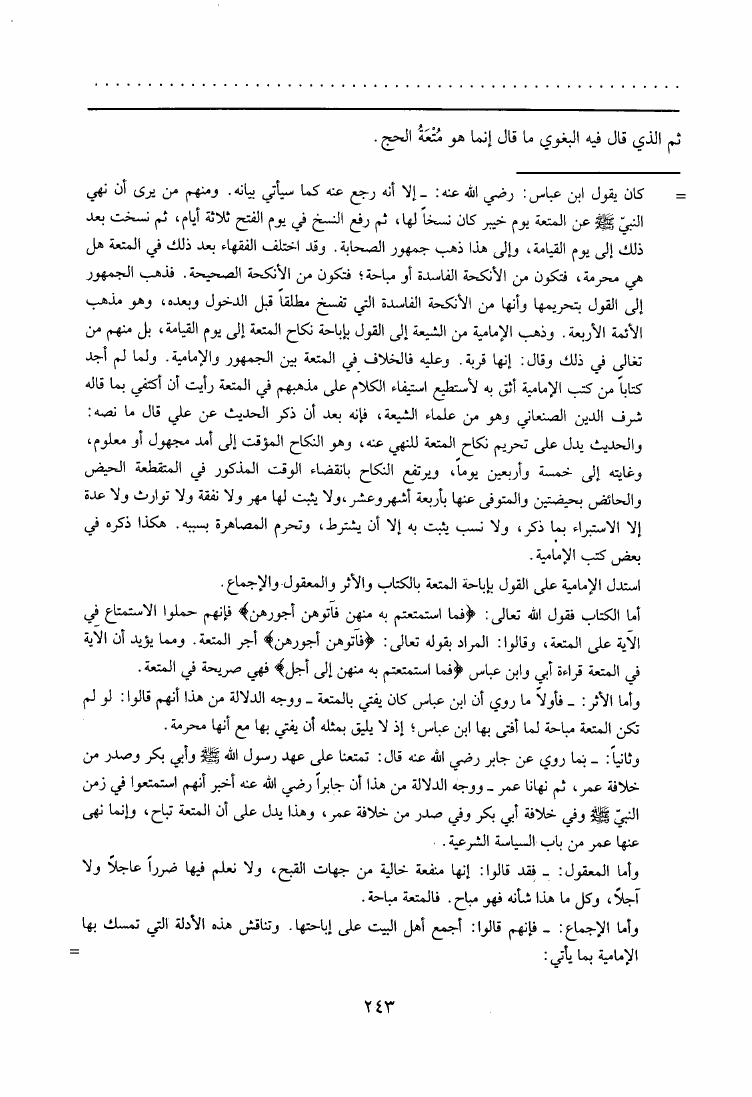 ثم الذي قال فيه البغوي ما قال إنما هو مُتْعَةُ الحج.
= كان يقول ابن عباس: رضي الله عنه: ـ إلا أنه رجع عنه كما سيأتي بيانه. ومنهم من يرى أن نهي
النبيّ ﷺ عن المتعة يوم خيبر كان نسخاً لها، ثم رفع النسخ في يوم الفتح ثلاثة أيام، ثم نسخت بعد
ذلك إلى يوم القيامة، وإلى هذا ذهب جمهور الصحابة. وقد اختلف الفقهاء بعد ذلك في المتعة هل
هي محرمة، فتكون من الأنكحة الفاسدة أو مباحة؛ فتكون من الأنكحة الصحيحة. فذهب الجمهور
إلى القول بتحريمها وأنها من الأنكحة الفاسدة التي تفسخ مطلقاً قبل الدخول وبعده، وهو مذهب
الأئمة الأربعة. وذهب الإمامية من الشيعة إلى القول بإباحة نكاح المتعة إلى يوم القيامة، بل منهم من
تغالى في ذلك وقال: إنها قربة. وعليه فالخلاف في المتعة بين الجمهور والإمامية. ولما لم أجد
كتاباً من كتب الإمامية أثق به لأستطيع استيفاء الكلام على مذهبهم في المتعة رأيت أن أكتفي بما قاله
شرف الدين الصنعاني وهو من علماء الشيعة، فإنه بعد أن ذكر الحديث عن علي قال ما نصه:
والحديث يدل على تحريم نكاح المتعة للنهي عنه، وهو النكاح المؤقت إلى أمد مجهول أو معلوم،
وغايته إلى خمسة وأربعين يوماً، ويرتفع النكاح بانقضاء الوقت المذكور في المتقطعة الحيض
والحائض بحيضتين والمتوفى عنها بأربعة أشهر وعشر، ولا يثبت لها مهر ولا نفقة ولا توارث ولا عدة
إلا الاستبراء بما ذكر، ولا نسب يثبت به إلا أن يشترط، وتحرم المصاهرة بسببه. هكذا ذكره في
بعض كتب الإمامية.
استدل الإمامية على القول بإباحة المتعة بالكتاب والأثر والمعقول والإجماع.
أما الكتاب فقول الله تعالى: ﴿فما استمتعتم به منهن فآتوهن أجورهن﴾ فإنهم حملوا الاستمتاع في
الآية على المتعة، وقالوا: المراد بقوله تعالى: ﴿فآتوهن أجورهن﴾ أجر المتعة. ومما يؤيد أن الآية
في المتعة قراءة أبي وابن عباس ﴿فما استمتعتم به منهن إلى أجل﴾ فهي صريحة في المتعة.
وأما الأثر: ـ فأولاً ما روي أن ابن عباس كان يفتي بالمتعة ـ ووجه الدلالة من هذا أنهم قالوا: لو لم
تكن المتعة مباحة لما أفتى بها ابن عباس؛ إذ لا يليق بمثله أن يفتي بها مع أنها محرمة.
وثانياً: ـ بما روي عن جابر رضي الله عنه قال: تمتعنا على عهد رسول الله ﷺ وأبي بكر وصدر من
خلافة عمر، ثم نهانا عمر ـ ووجه الدلالة من هذا أن جابراً رضي الله عنه أخبر أنهم استمتعوا في زمن
النبيّ ﷺ وفي خلافة أبي بكر وفي صدر من خلافة عمر، وهذا يدل على أن المتعة تباح، وإنما نهى
عنها عمر من باب السياسة الشرعية.
وأما المعقول: ـ فقد قالوا: إنها منفعة خالية من جهات القبح، ولا نعلم فيها ضرراً عاجلاً ولا
آجلاً، وكل ما هذا شأنه فهو مباح. فالمتعة مباحة.
وأما الإجماع: ـ فإنهم قالوا: أجمع أهل البيت على إباحتها. وتناقش هذه الأدلة التي تمسك بها
الإمامية بما يأتي: =
٢٤٣